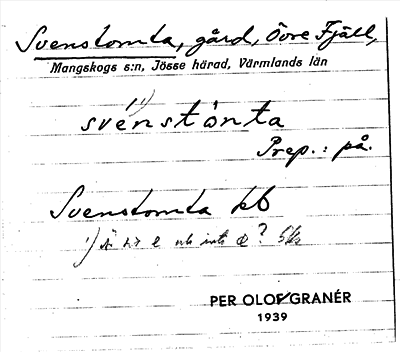 Svenstomta, gård, Övre Fjäll,
Mangskogs s:n, Jösse härad, Värmlands län
1)
svénstònta
Prep.: på.
Svenstomta kb
1) Är det e och inte æ? Sks
PER OLOF GRANÉR
1939